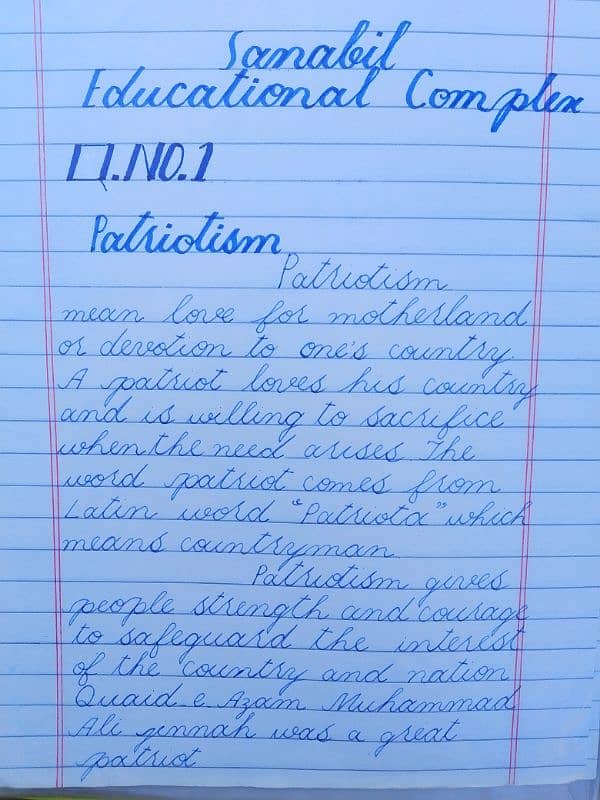 Sanabil
Educational Complex
Q.NO.1
Patriotism
Patriotism
mean love for motherland
or devotion to one's country.
A patriot loves his country
and is willing to sacrifice
when the need arises. The
word patriot comes from
Latin word "Patriota" which
means countryman
Patriotism gives
people strength and courage
to safeguard the interest
of the country and nation
Quaid e Azam Muhammad
Ali jinnah was a great
patriot